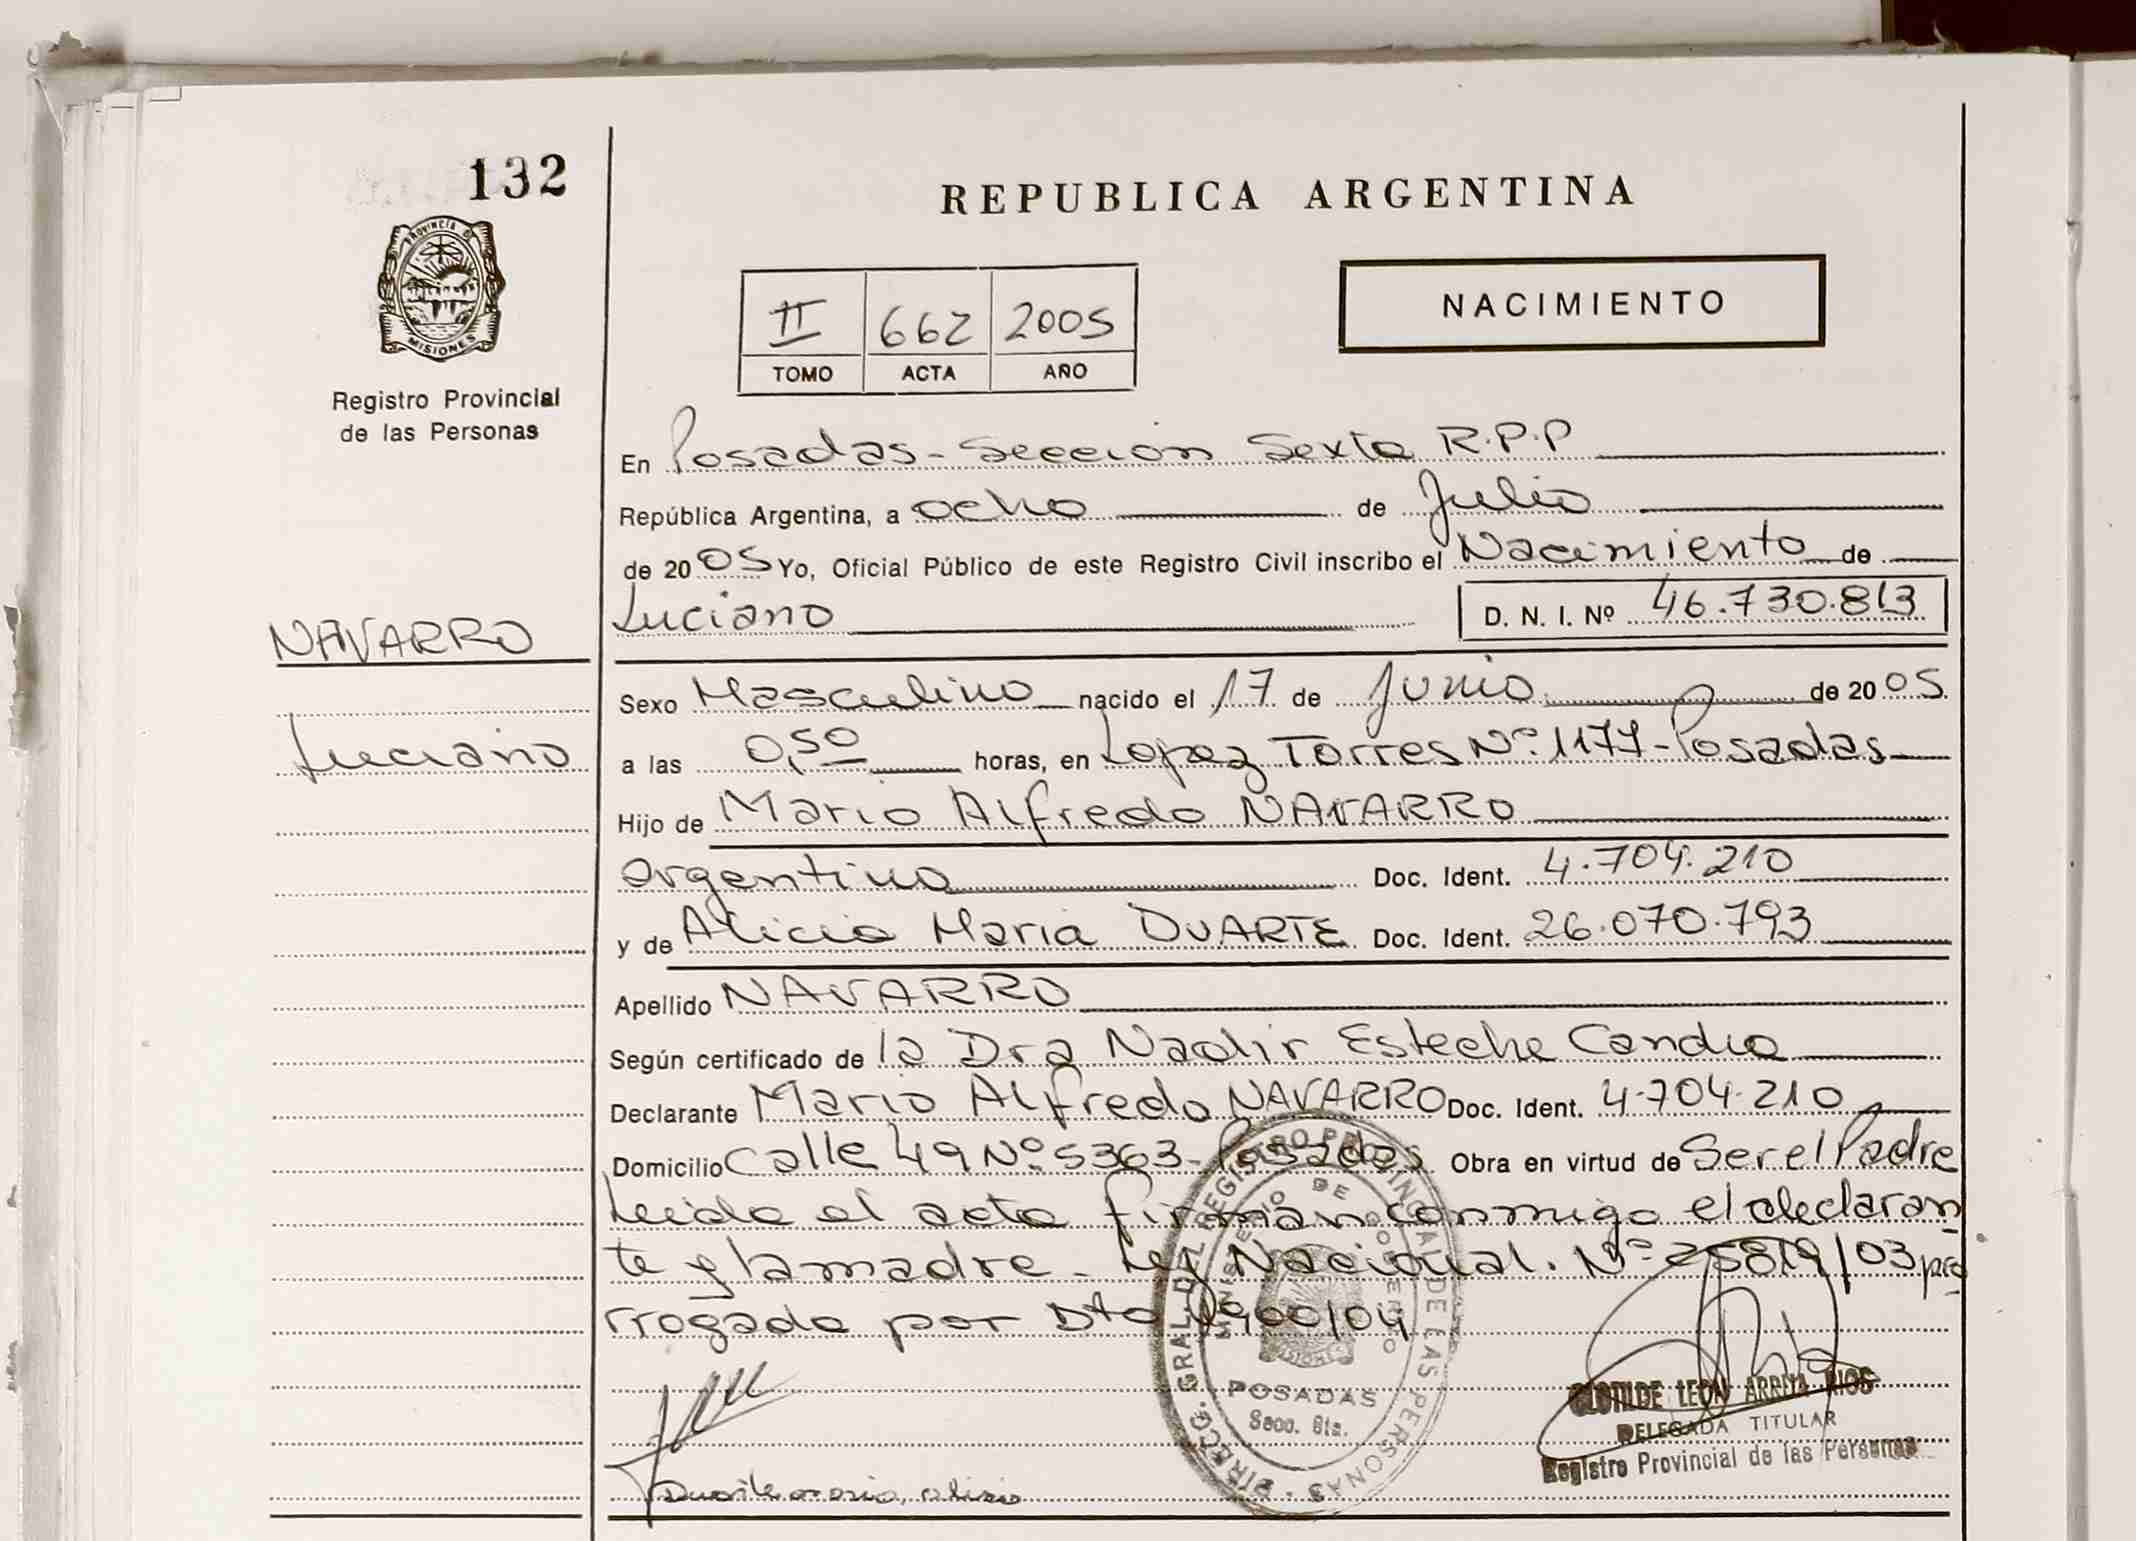 132
PROVINCIA D
MISIONES
Registro Provincial
de las Personas
REPUBLICA ARGENTINA
II 662 2005
TOMO ACTA AÑO
NACIMIENTO
En Posadas - Sección Sexta R.P.P
República Argentina, a ocho de Julio
de 2005 Yo, Oficial Público de este Registro Civil inscribo el Nacimiento de
Luciano
D. N. I. Nº 46.730.813
NAVARRO
Luciano
Sexo Masculino nacido el 17 de Junio de 2005
a las 0,50 horas, en Lopez Torres Nº 1177 - Posadas
Hijo de Mario Alfredo NAVARRO
argentino Doc. Ident. 4.704.210
y de Alicia Maria DUARTE Doc. Ident. 26.070.793
Apellido NAVARRO
Según certificado de la Dra Nadir Esteche Candia
Declarante Mario Alfredo NAVARRO Doc. Ident. 4.704.210
Domicilio Calle 49 Nº 5363 - Posadas Obra en virtud de Ser el Padre
Leida el acta firman conmigo el declaran
te y la madre - Ley Nacional. Nº 25819/03 pro
rrogada por Dto 1900/04
DIRECC. GRAL. DEL REGISTRO PROVINCIAL DE LAS PERSONAS
MINISTERIO DE GOBIERNO
MISIONES
POSADAS
Secc. 6ta.
Duarte maria alicia
CLOTILDE LEON ARRITA RIOS
DELEGADA TITULAR
Registro Provincial de las Personas